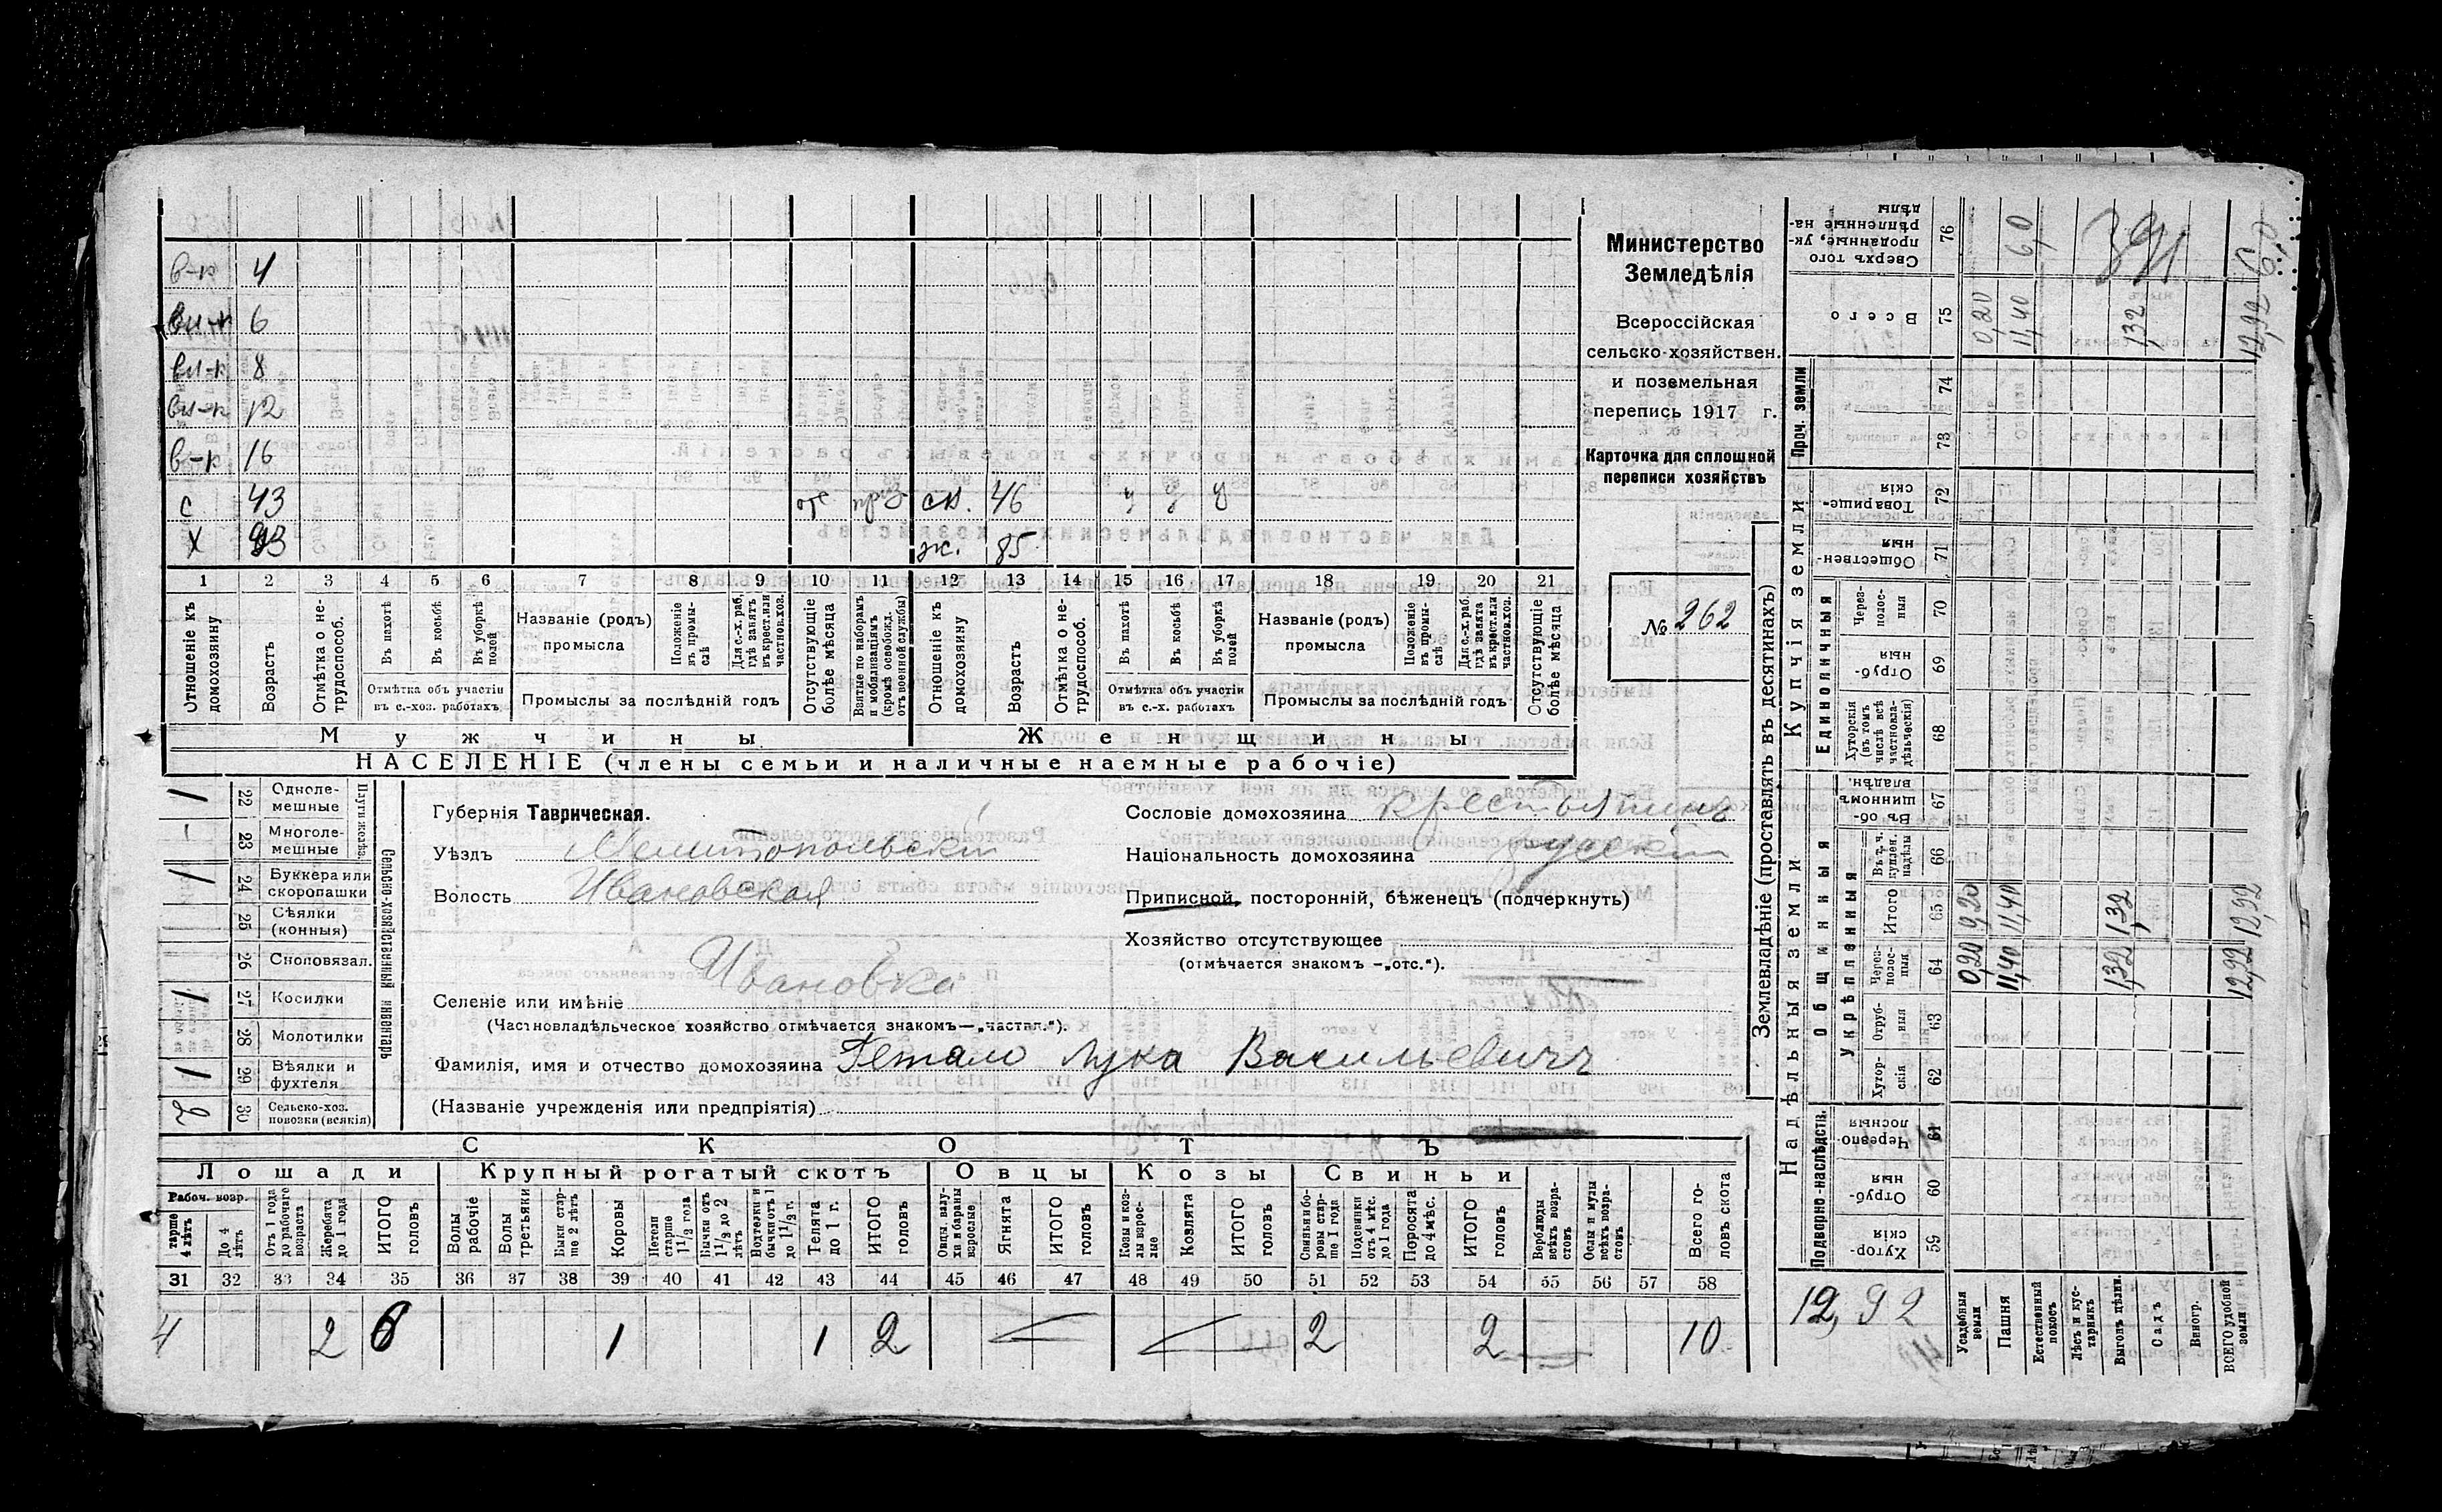 в-к 4
вн-к 6
вн-к 8
вн-к 12
в-к 16
с 43 сн. 46 у у у
х 93 ж. 85
1 2 3 4 5 6 7 8 9 10 11 12 13 14 15 16 17 18 19 20 21
Отношеніе къ домохозяину
Возрастъ
Отмѣтка о нетрудоспособ.
Въ пахотѣ
Въ косьбѣ
Въ уборкѣ полей
Отмѣтка объ участіи въ с.-хоз. работахъ
Названіе (родъ) промысла
Положеніе въ промыслѣ
Для с.-х. раб. гдѣ занятъ въ крест. или частнов. хоз.
Промыслы за послѣдній годъ
Отсутствующіе болѣе мѣсяца
Взятые по наборамъ и мобилизаціямъ (кромѣ освобожд. отъ военной службы)
Отношеніе къ домохозяину
Возрастъ
Отмѣтка о нетрудоспособ.
Въ пахотѣ
Въ косьбѣ
Въ уборкѣ полей
Отмѣтка объ участіи въ с.-х. работахъ
Названіе (родъ) промысла
Положеніе въ промыслѣ
Для с.-х. раб. гдѣ занята въ крест. или частнов. хоз.
Промыслы за послѣдній годъ
Отсутствующіе болѣе мѣсяца
Мужчины Женщины
НАСЕЛЕНІЕ (члены семьи и наличные наемные рабочіе)
Министерство
Земледѣлія
Всероссійская
сельско-хозяйствен.
и поземельная
перепись 1917 г.
Карточка для сплошной
переписи хозяйствъ
№ 262
Сельско-хозяйственный инвентарь
Плуги желѣз.
1 22 Однолемешные
- 23 Многолемешные
1 24 Буккера или скоропашки
25 Сѣялки (конныя)
26 Сноповязал.
1 27 Косилки
28 Молотилки
1 29 Вѣялки и фухтеля
2 30 Сельско-хоз. повозки (всякія)
Губернія Таврическая.
Уѣздъ Мелитопольскій
Волость Ивановская
Селеніе или имѣніе Ивановка
(Частновладѣльческое хозяйство отмѣчается знакомъ—„частвл.“).
Сословіе домохозяина крестьянинъ
Національность домохозяина русскій
Приписной, посторонній, бѣженецъ (подчеркнуть)
Хозяйство отсутствующее
(отмѣчается знакомъ —„отс.“).
Фамилія, имя и отчество домохозяина Гетало Лука Васильевичъ
(Названіе учрежденія или предпріятія)
СКОТЪ
Лошади Крупный рогатый скотъ Овцы Козы Свиньи
Рабоч. возр.
Старше 4 лѣтъ
До 4 лѣтъ
Отъ 1 года до рабочаго возраста
Жеребята до 1 года
ИТОГО головъ
Волы рабочіе
Волы третьяки
Быки старше 2 лѣтъ
Коровы
Нетели старше 1 1/2 года
Бычки отъ 1 1/2 до 2 лѣтъ
Водтелки и бычки отъ 1 до 1 1/2 г.
Телята до 1 г.
ИТОГО головъ
Овцы, валухи и бараны взрослые
Ягнята
ИТОГО
Козы и козлы взрослые
Козлята
ИТОГО
Свиньи и боровы старше 1 года
Подсвинки отъ 4 мѣс. до 1 года
Поросята до 4 мѣс.
ИТОГО головъ
Верблюды всѣхъ возрастовъ
Ослы и мулы всѣхъ возрастовъ
Всего головъ скота
31 32 33 34 35 36 37 38 39 40 41 42 43 44 45 46 47 48 49 50 51 52 53 54 55 56 57 58
4 2 6 1 1 2 2 2 10
Землевладѣніе (проставлять въ десятинахъ)
Надѣльныя земли Купчія земли Проч. земли
Подворно-наслѣдств. Общинныя Единоличныя
Укрѣпленныя
Хуторскія 59
Отрубныя 60
Черезполосныя 61
Хуторскія 62
Отрубныя 63
Черезполосныя 64
Итого 65
Въ т. ч. куплен. надѣлы 66
Въ общинномъ владѣн. 67
Хуторскія (въ томъ числѣ всѣ частновладѣльческія) 68
Отрубныя 69
Черезполосныя 70
Общественныя 71
Товарищескія 72
73
74
Всего 75
Сверхъ того проданные, укрѣпленные надѣлы 76
12,92
Усадебныя земли 0,20 0,20 0,20
Пашня 11,40 11,40 11,40 6,0
Естественный покосъ
Лѣсъ и кустарникъ
Выгонъ цѣлин. 1,32 1,32 1,32
Садъ
Виногр.
ВСЕГО удобной земли 12,92 12,92 12,92 6,0